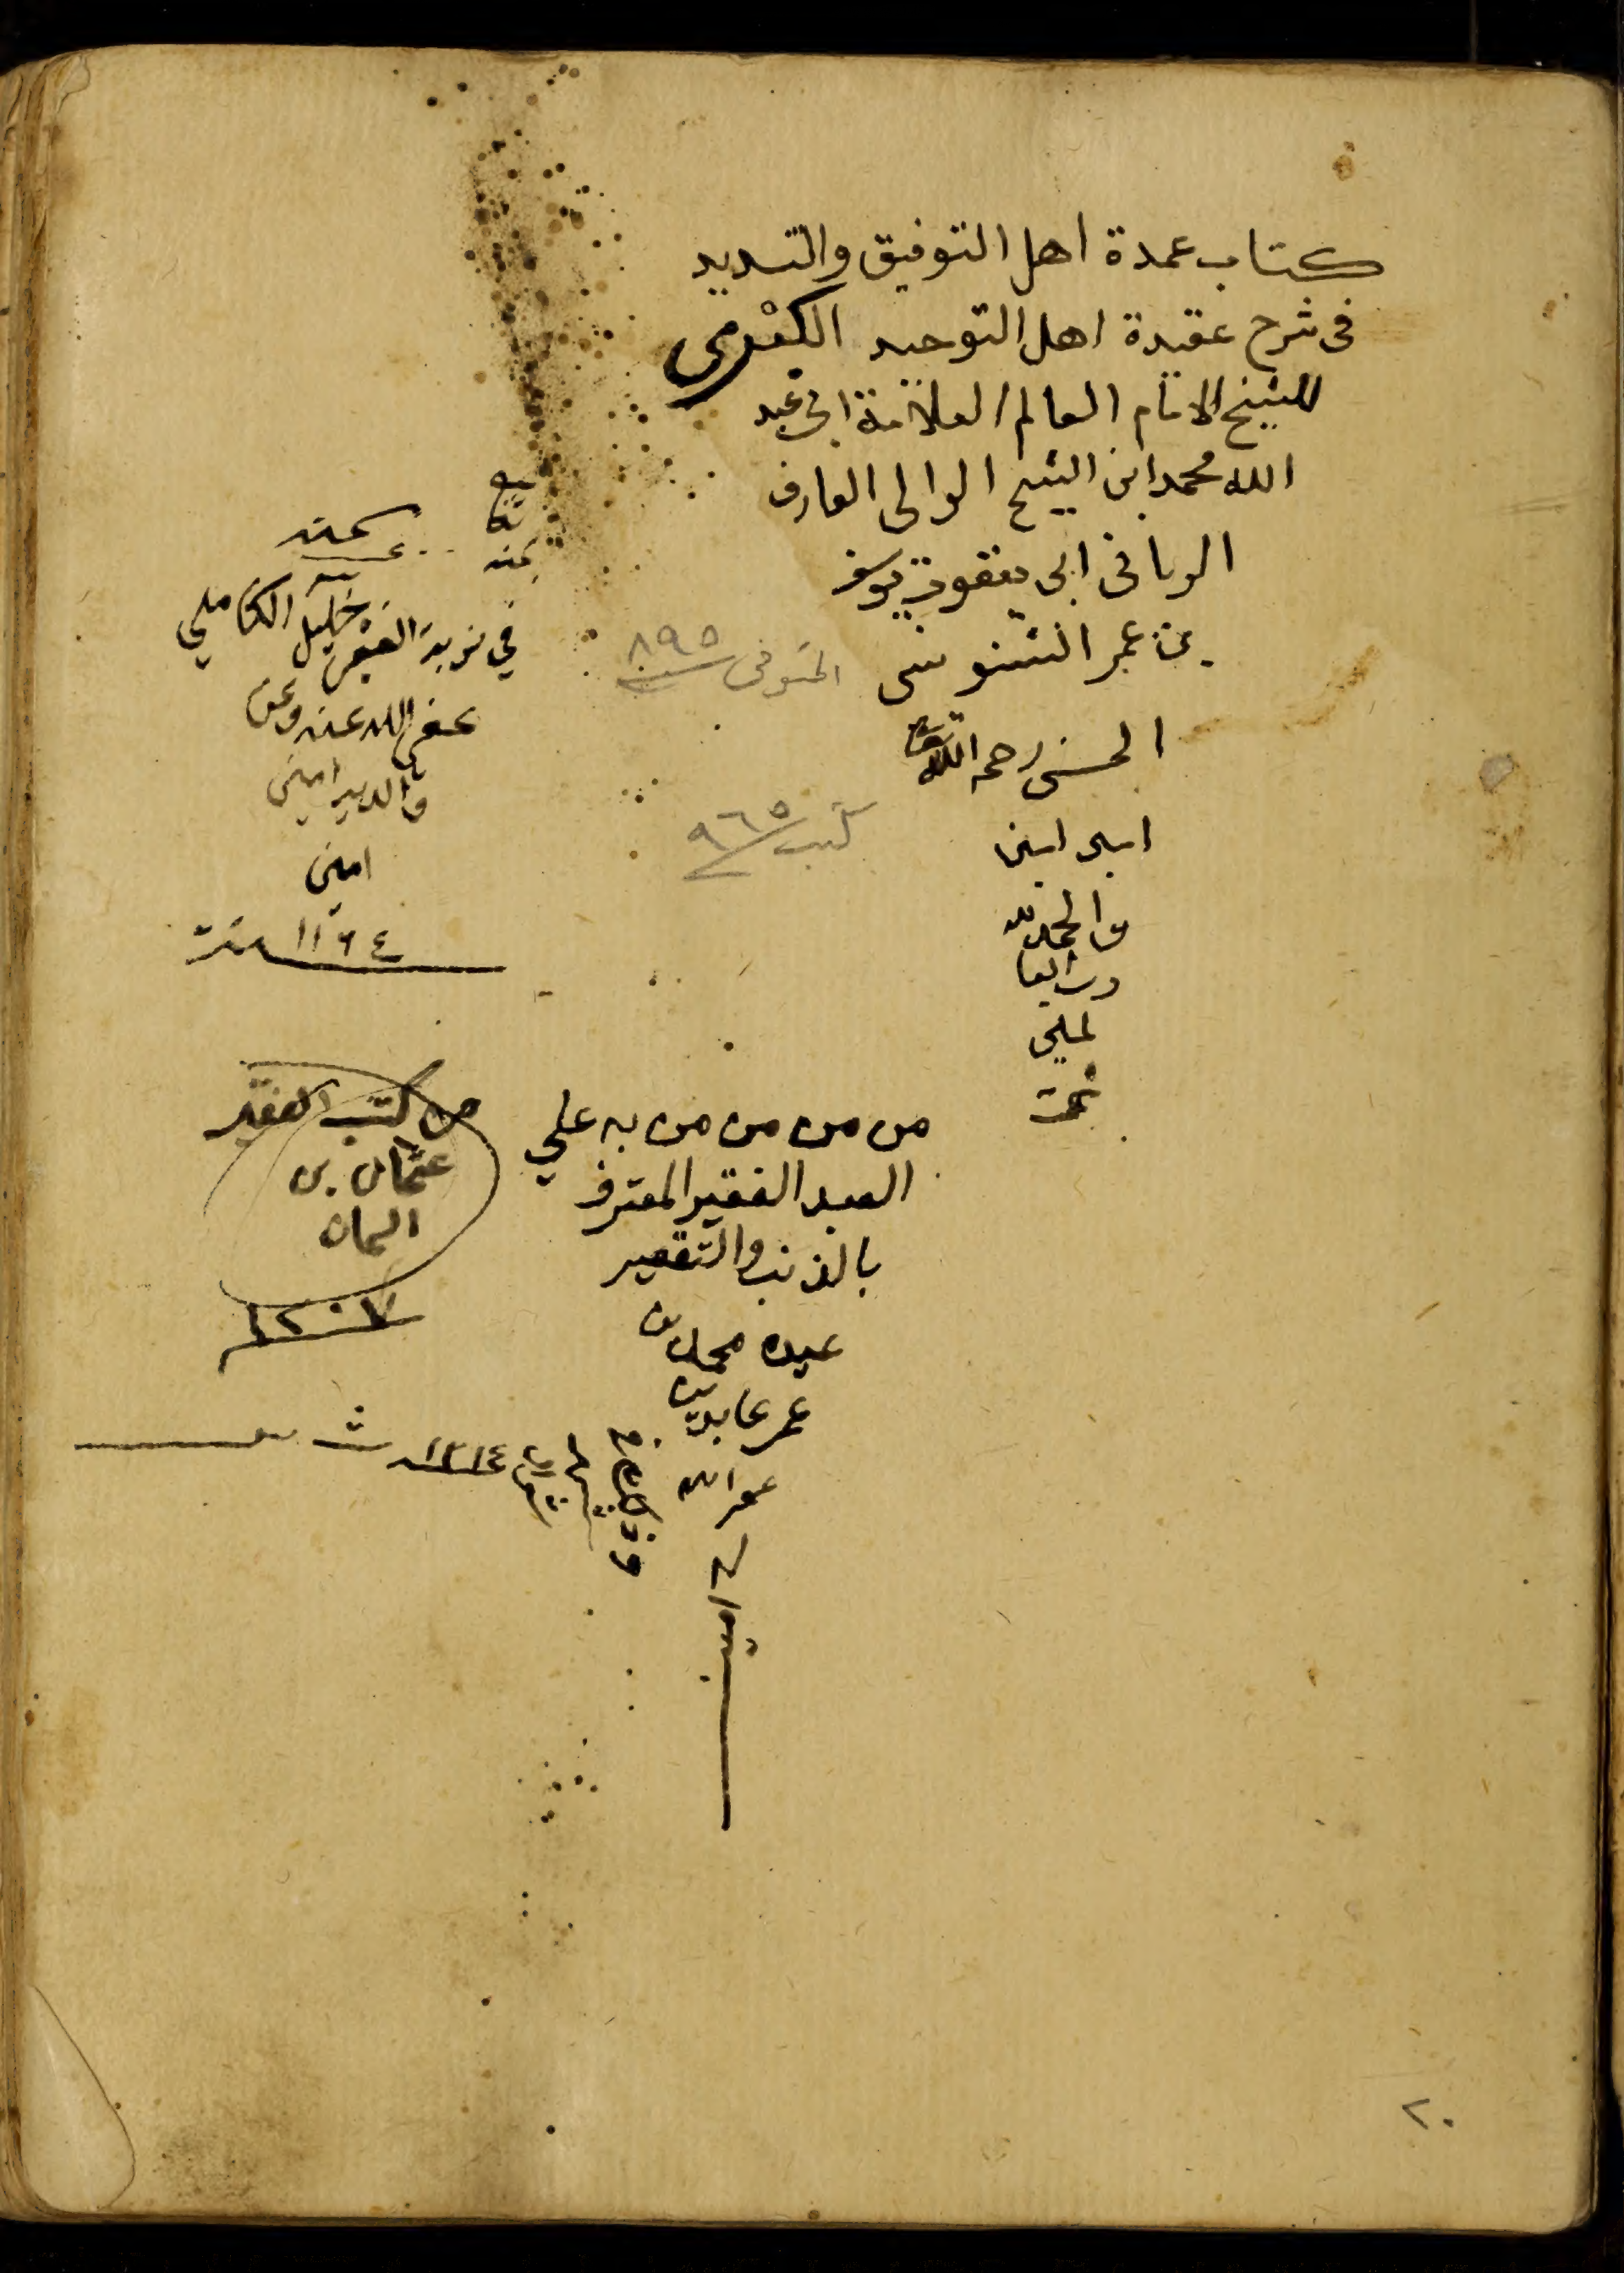 كتاب عمدة اهل التوفيق والتسديد
فى شرح عقيدة اهل التوحيد الكبرى
للشيخ الامام العالم العلامة ابى عبد
الله محمد ابن الشيخ الوالى العارف
الربانى ابى يعقوب يوسف
بن عمر السنوسى
المتوفى ٨٩٥
الحسنى رحمه الله
كتب ٩٦٥
امين امين
والحمد لله
رب العا
لمين
تمت
بمنه
في نوبة الفقير خليل الكاملي
عفى الله عنه وعن
والديه امين
امين
١١٦٤ سنة
من كتب الفقير
عثمان بن
١٢٠٧
من من من من به علي
العبد الفقير المعترف
بالذنب والتقصير
عبده محمد
عمر عابدين
غفر الله
١٢١٤
٢٠